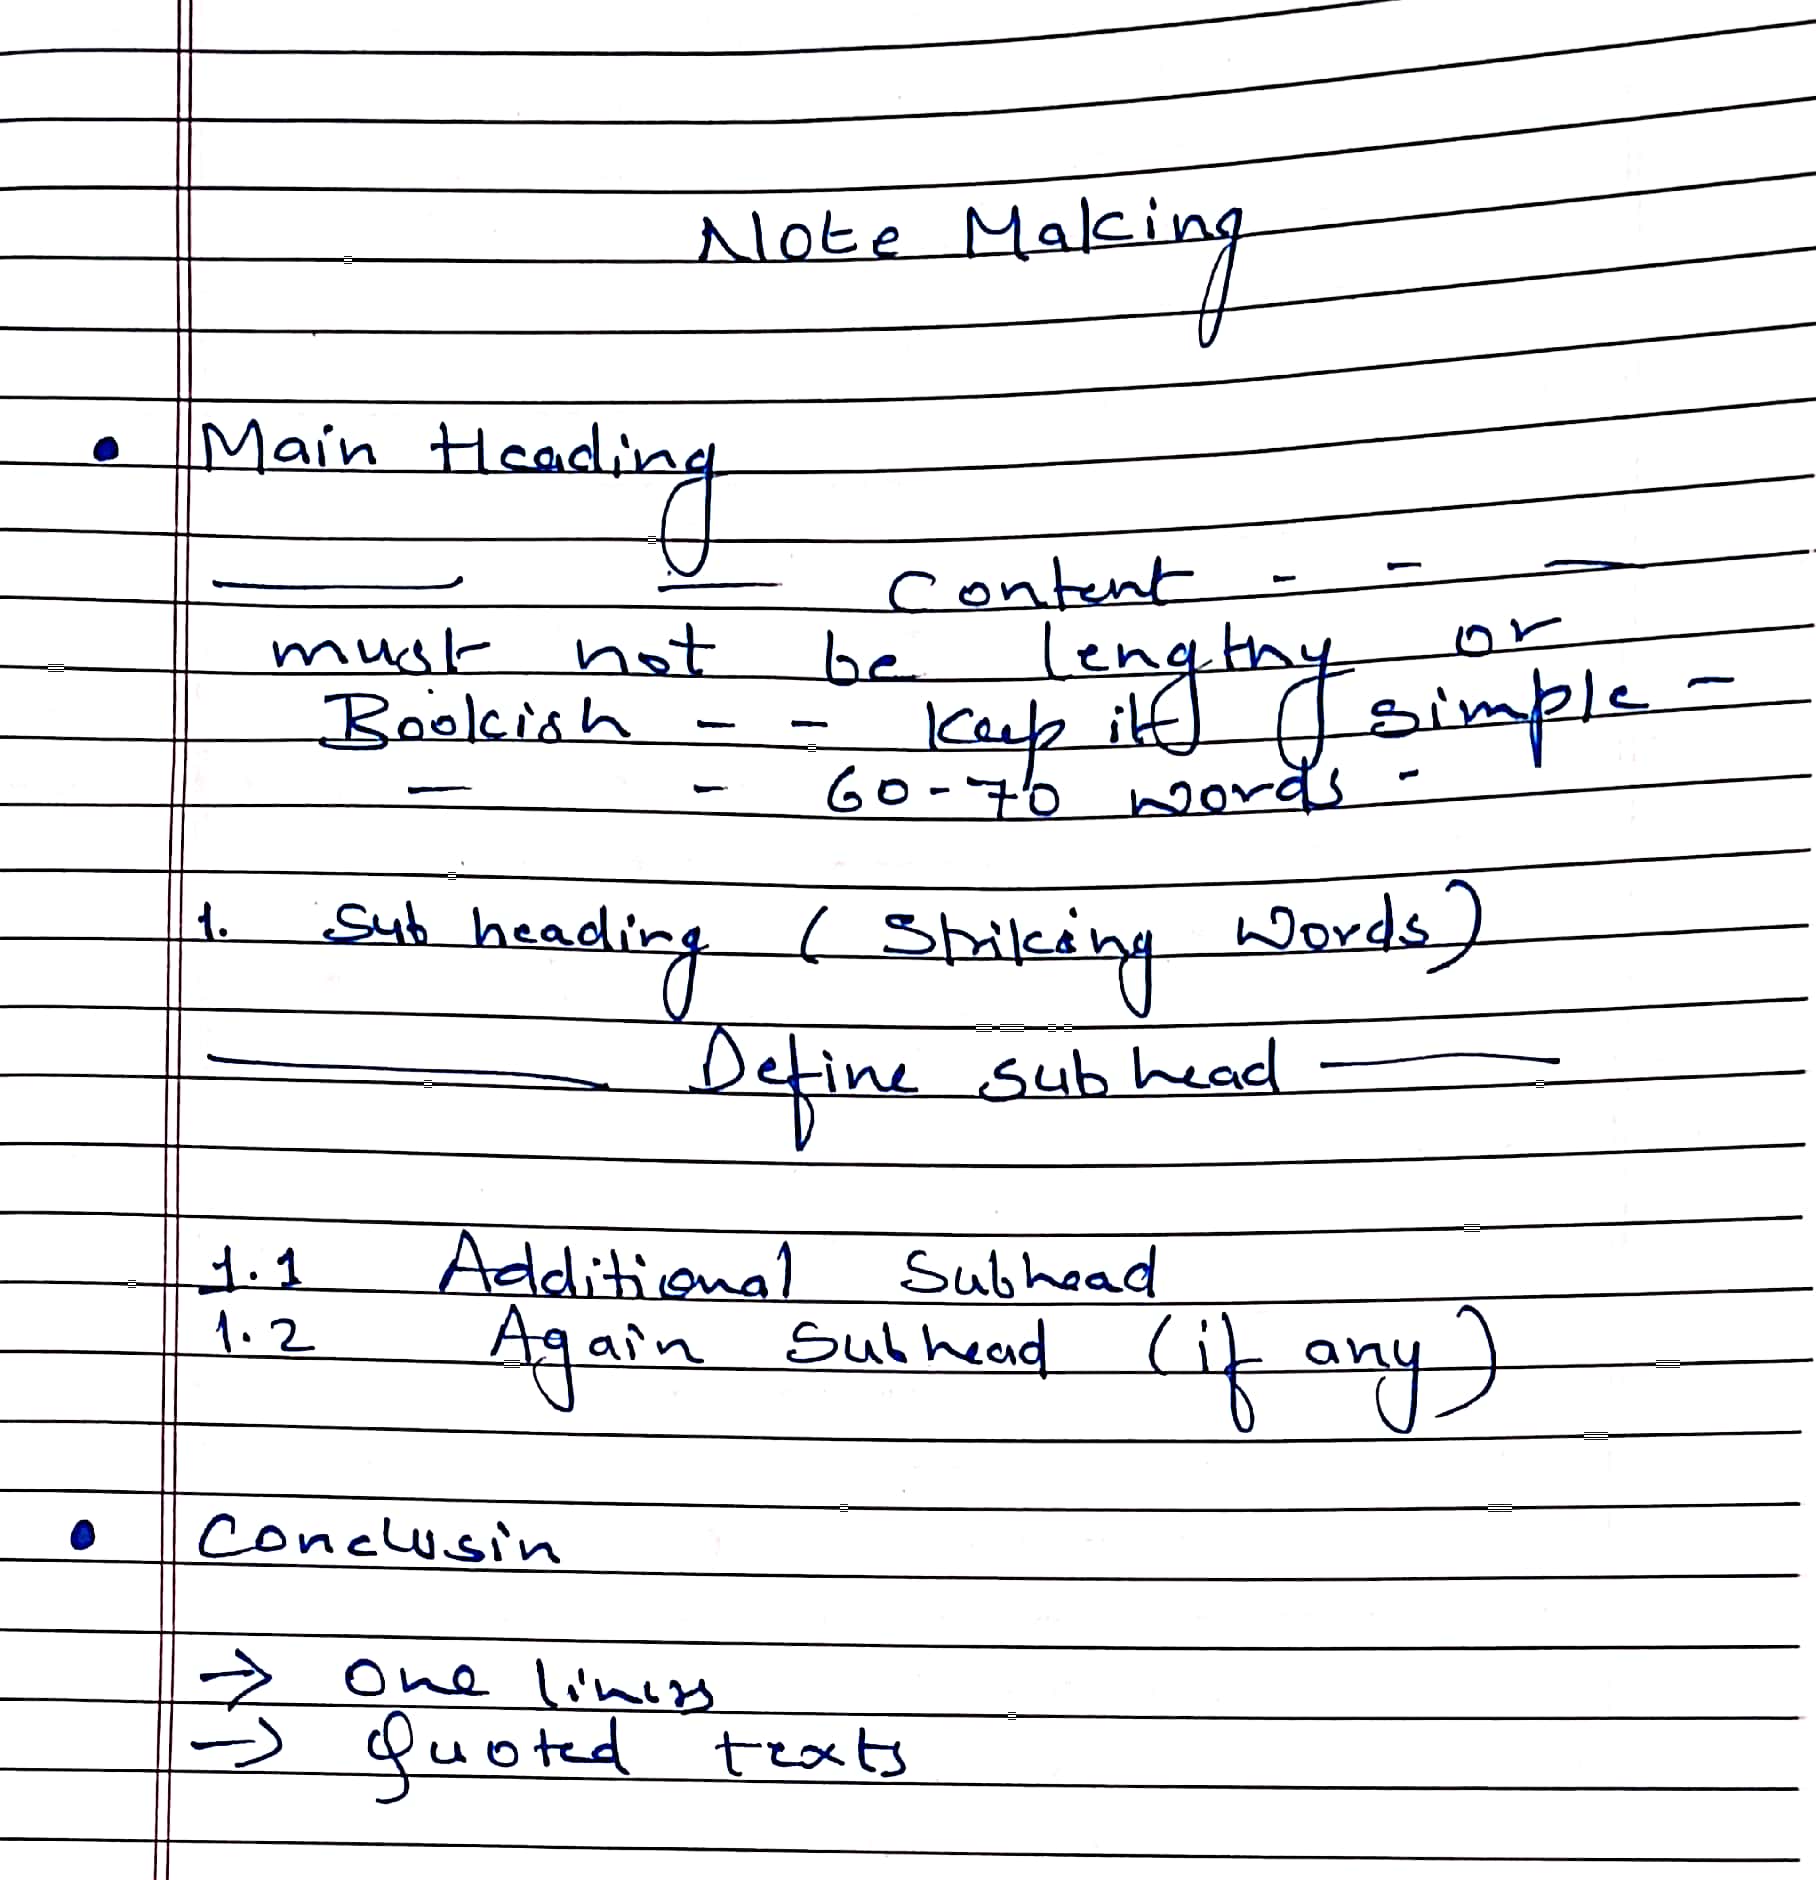 Note Making
• Main Heading
—— — Content - - —
must not be lengthy or
Bookish - - keep it simple -
— - 60-70 words -
1. Sub heading (Striking Words)
—— Define subhead ——
1.1 Additional Subhead
1.2 Again Subhead (if any)
• Conclusin
→ One liners
→ Quoted texts